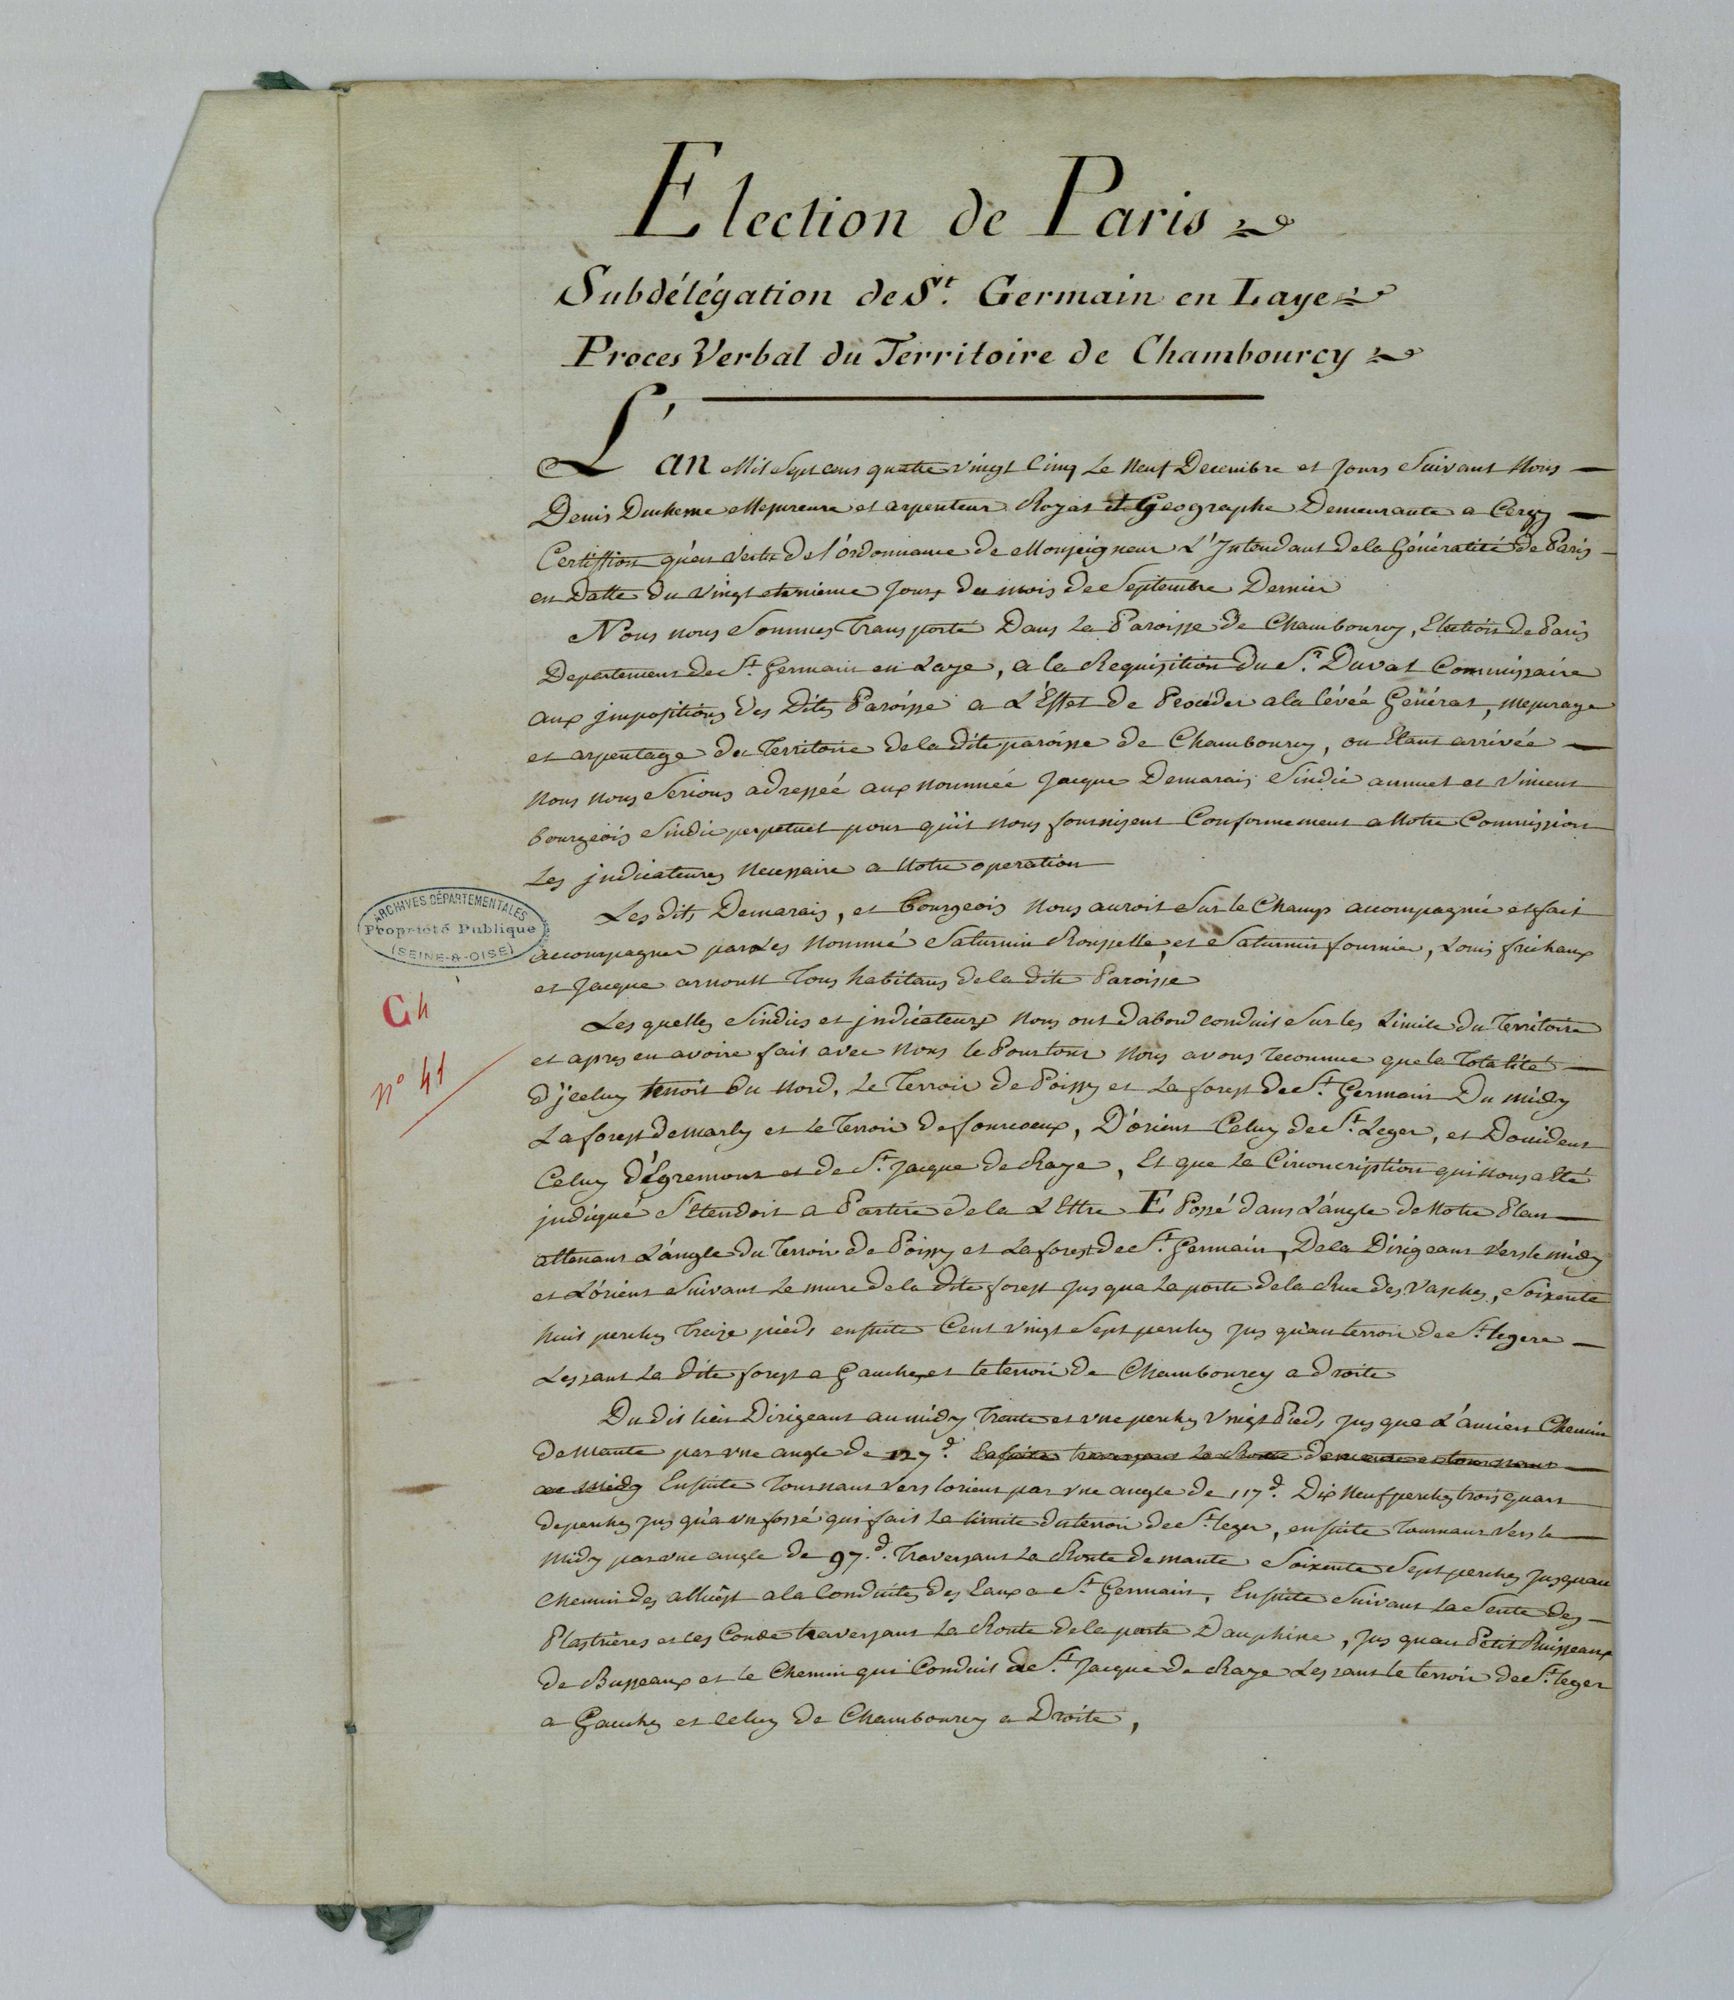 Election de Paris
Subdélégation de St. Germain en Laye
Proces Verbal du Territoire de Chambourcy
L'an Mil Sept cens quatre vingt Cinq Le Neuf Decembre et jours Suivant Nous
Denis Duchesne Mesureure et arpenteur Royal et Geographe Demeurante a Cergy
Certiffion qu'en Vertu de l'ordonnance de Monseigneur L'Intendant de la Généralité de Paris
en Datte du vingt Jours du mois de Septembre Dernier
Nous nous Sommes Transporté Dans La Paroisse de Chambourcy, Election de Paris
Departement de St. Germain en Laye, a la Requisition du Sr. Duval Commissaire
aux jmpositions des Dites Paroisse a L'Effet de Proceder a la lévéé Général, mesurage
et arpentage du Territoire de la dite paroisse de Chambourcy, ou Etant arrivée
Nous nous Serions adresséé aux nommée Jacque Demarais Sindic annuel et Vincent
bourgeois Sindic perpetuel pour qu'il nous fournisent Conformement a Notre Commission
Les jndicateures Necessaire a Notre operation
Les dits Demarais, et bourgeois Nous auroit Sur le Champ accompagnée et fait
accompagner par Les Nommé Saturnin Roussette, et Saturnin fournier, Louis frichaux
et Jacque arnoult Tous habitans de la dite Paroisse
Les quelles Sindics et jndicateurs Nous ont d'abord conduit Sur les Limite du Territoire
et apres en avoire fait avec Nous le Pourtour Nous avons reconnue que la Totalité
d'jceluy tenoit Du Nord, Le Terroir de Poissy et La forest de St. Germain Du midy
La forest de marly et Le Terroir de fourceux, D'orient Celuy de St. Leger, et Doccident
Celuy d'Egremont et de St. Jacque de Raye, Et que La Circoncription qui nous a Eté
jndiqué S'Etendoit a Partire de la LEttre E Possé dans L'angle de Notre Plan
attenant L'angle du Terroir de Poissy et La forest de St. Germain, De la Dirigeant Vers le midy
et L'orient Suivant Le mure de la dite forest Jus qua La porte de la Rue des Vasches, Soixente
huit perches Treize pieds ensuite Cent vingt Sept perches Jus qu'au terroir de St. legere
Lessant La dite forest a Gauches et le terroir de Chambourcy a droite
Du dit lieu Dirigeant au midy Trente et une perches vingt Pieds Jus que L'ancien Chemin
de mante par une angle de 127d. Ensuite traversant La Route de mante et tournant
au midy Ensuite Tournant Vers lorient par une angle de 117d. Dix Neuf perches trois quart
de perches Jus qu'a un fossé qui fait La limite du terroir de St. leger, ensuite Tournant Vers le
Midy par une angle de 97.d. Traversant La Route de mante Soixente Sept perches Jusquau
Chemin des a la Conduite des Eaux a St. Germain, Ensuite Suivant La Sente des
Plastrieres et les traversant La Route de la porte Dauphine, Jus quau Petit Ruisseaux
de Busseaux et le Chemin qui Conduit de St. Jacque de Raye Lessant le terroir de St. leger
a Gauches et celuy de Chambourcy a Droite,
ARCHIVES DÉPARTEMENTALES
Propriété Publique
(SEINE-&-OISE)
C 4
N° 41